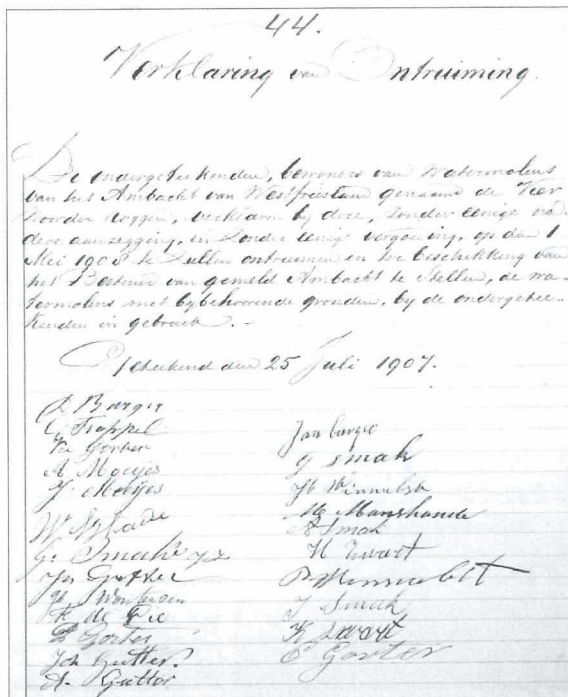 44.
Verklaring van Ontruiming.
De ondergeteekenden, bewoners van watermolens
van het Ambacht van Westfriesland genaamd de Vier
Noorder Koggen, verklaren bij deze, zonder eenige na-
dere aanzegging, en zonder eenige vergoeding, op den 1
Mei 1908 te zullen ontruimen en ter beschikking van
het Bestuur van gemeld Ambacht te stellen, de wa-
termolens met bijbehoorende gronden, bij de ondergetee-
kenden in gebruik. -
Geteekend den 25 Juli 1907.
Burger
Trappel
Gorter
A Mooijes
J. Mooijes
W
G. Smak
Jn Gutter
de Gie
Gorter
Joh Gutter.
A. Gutter
Jan Burger
G Smak
Manshande
A Smak
H Zwart
P
J Smak
K Zwart
C Gorter